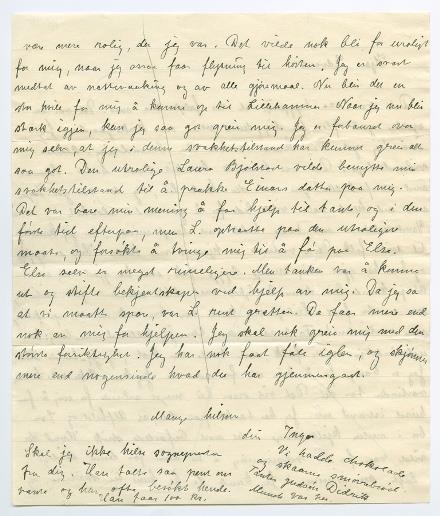 være mere rolig, der jeg var. Det vilde nok bli for uroligt
for mig, naar jeg ogsaa faar flytning til høsten. Jeg er svært
medtat av nattevaaking og av alle gjøremaal. Nu blir det en
stor hvile for mig å komme op til Lillehammer. Naar jeg nu blir
sterk igjen, kan jeg saa godt greie mig. Jeg er forbauset over
mig selv at jeg i denne svakhetstilstand har kunnet greie alt
saa got. Den utrolige Laura Bjølstad vilde benytte min
svakhetstilstand til å prakke Einars datter paa mig.
Det var bare min mening å faa hjelp til tante, og i den
første tid efterpaa, men L. optraatte paa den utroligste
maate, og forsøkte å tvinge mig til å få paa Else.
Else selv er meget rimeligere. Men tanken var å komme
ut og stifte bekjentskaper ved hjelp av mig. Da jeg sa
at vi maatte spare, var L. rent grætten. Da faar mere end
nok av mig for hjelpen. Jeg skal nok greie mig med den
største forsiktighet. Jeg har nok faat føle igjen, og skjønner
mere end nogensinde hvad du har gjennemgaat.
Mange hilsner
din Inga
Skal jeg ikke hilse sogneprsten
fra dig. Han talte saa pent om
tante og har ofte besøkt hende.
Han faar 100 kr.
Vi hadde chokolade
og skaarne smørrebrød
Tanken